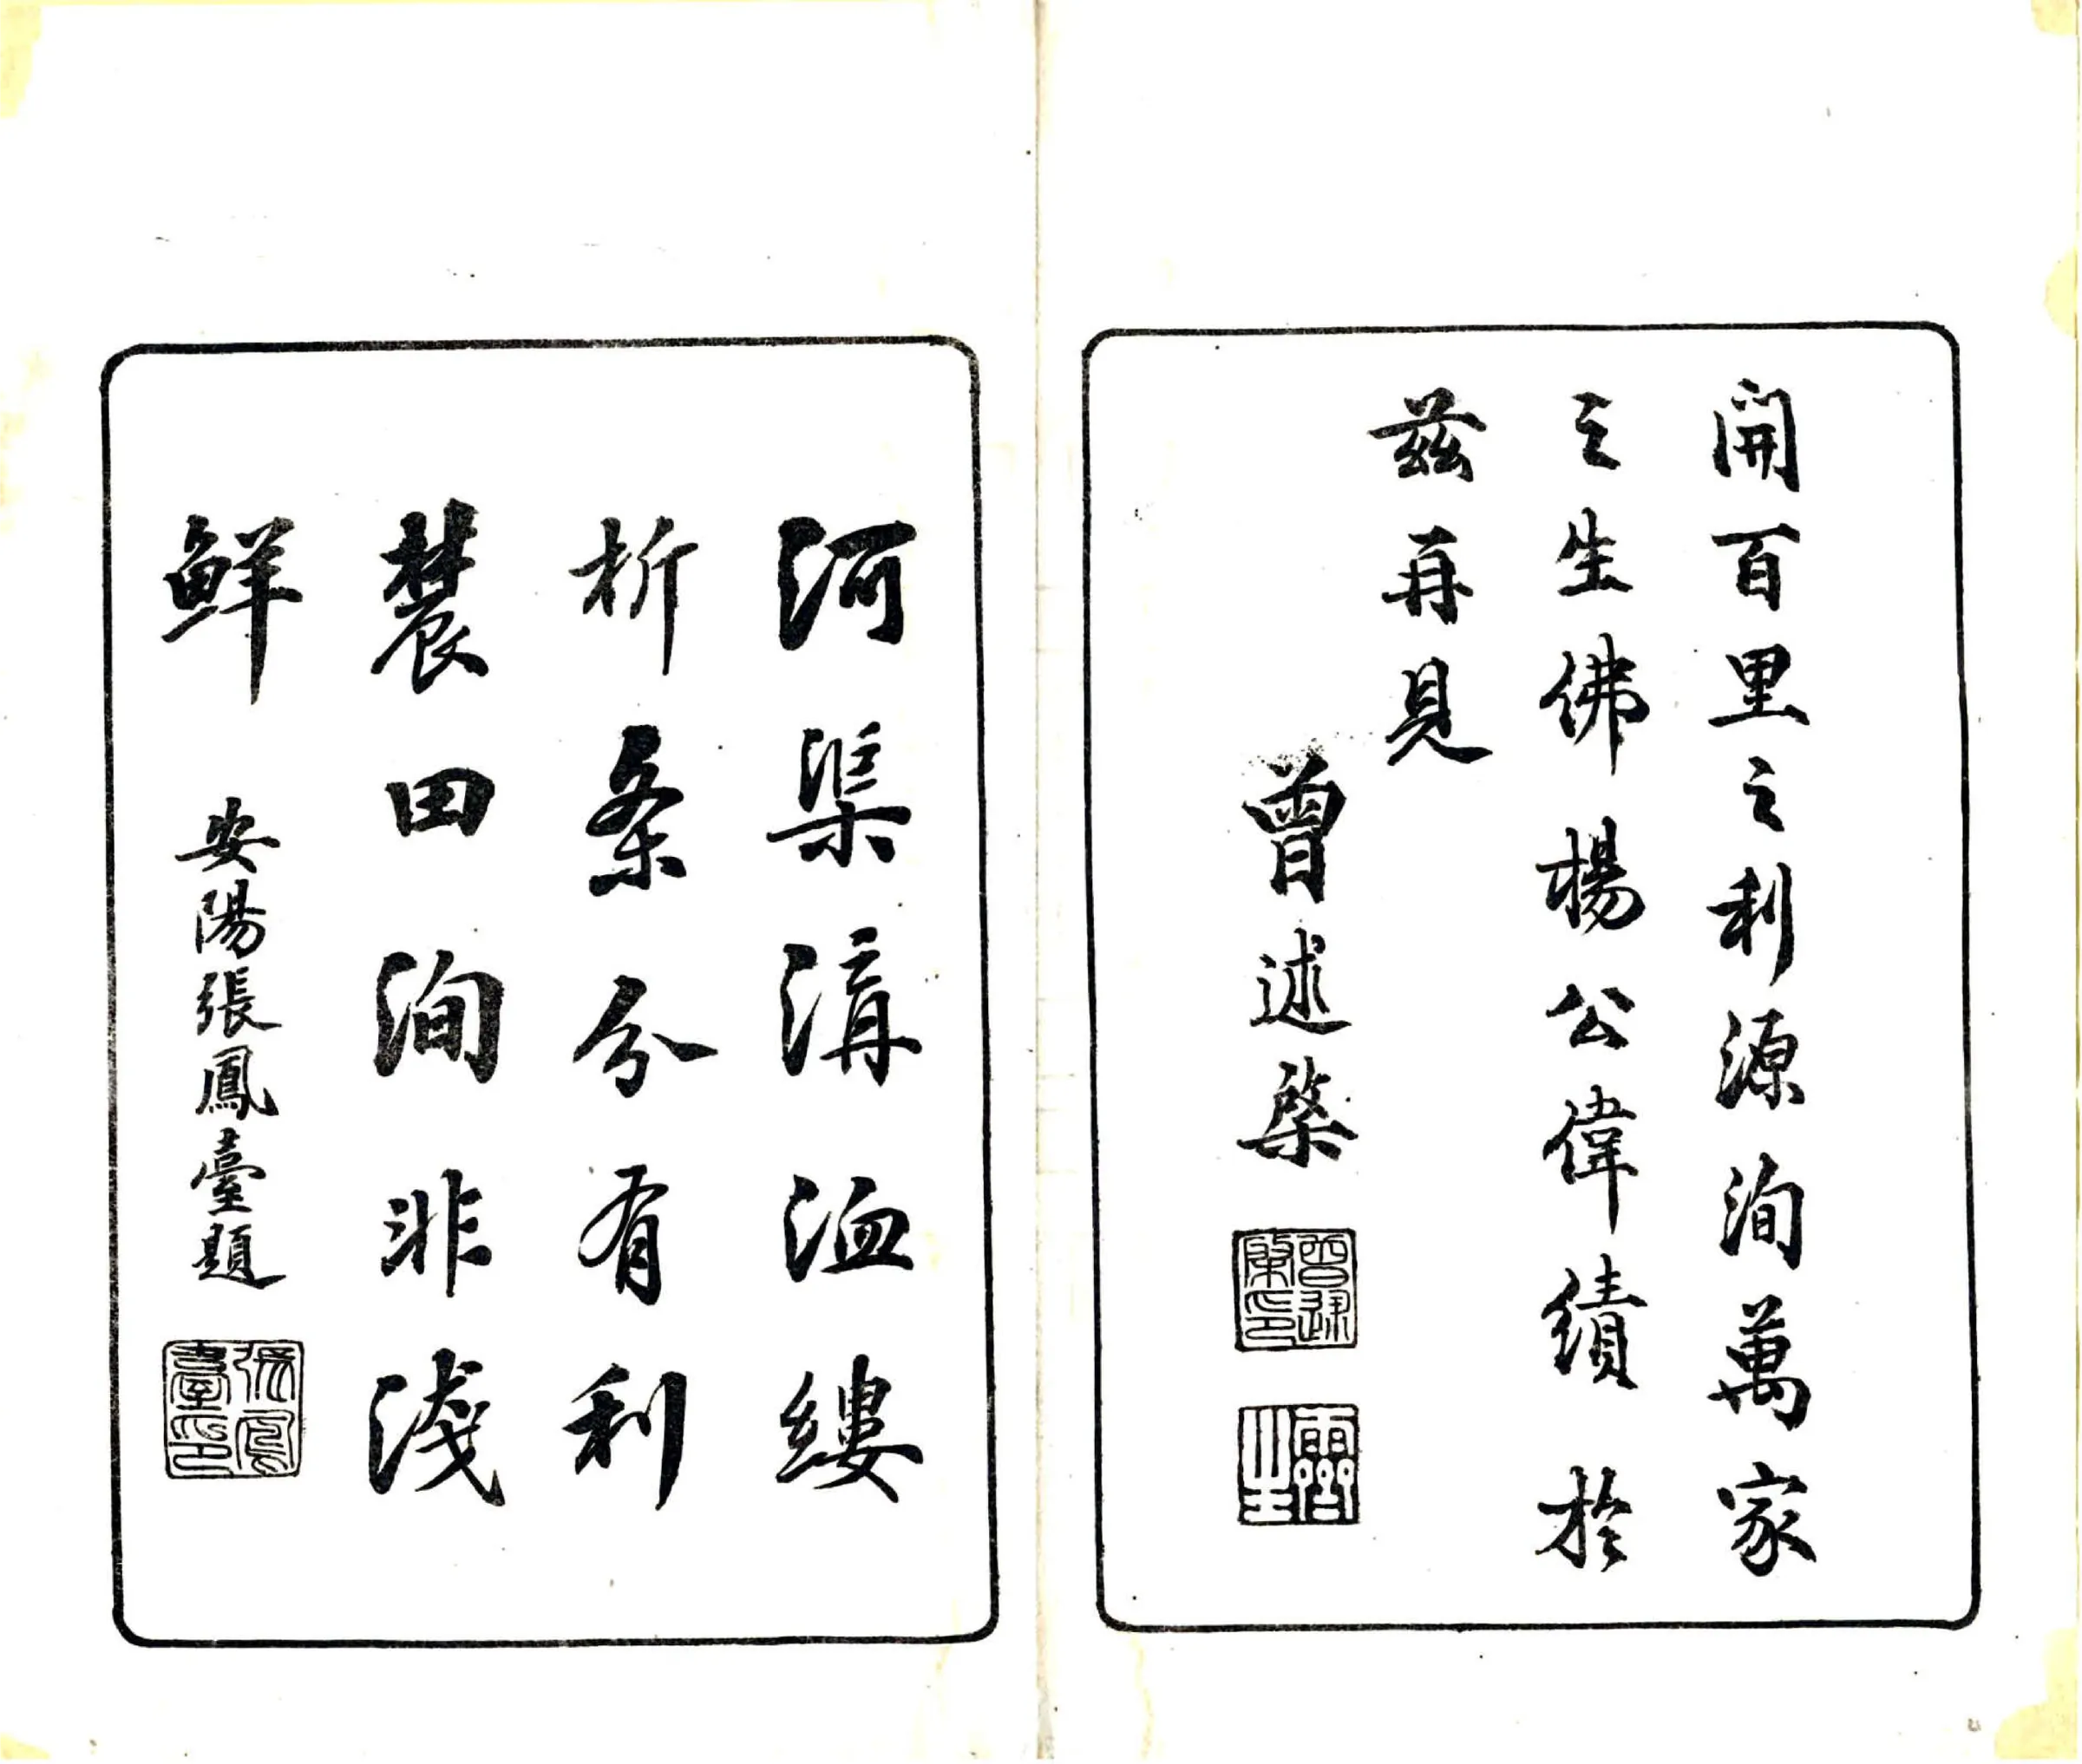 開百里之利源洵萬家
之生佛楊公偉績於
茲再見
曾述棨
曾述棨印
河渠溝洫縷
析条分有利
農田洵非淺
鮮
安陽張鳳臺題
張鳳臺印